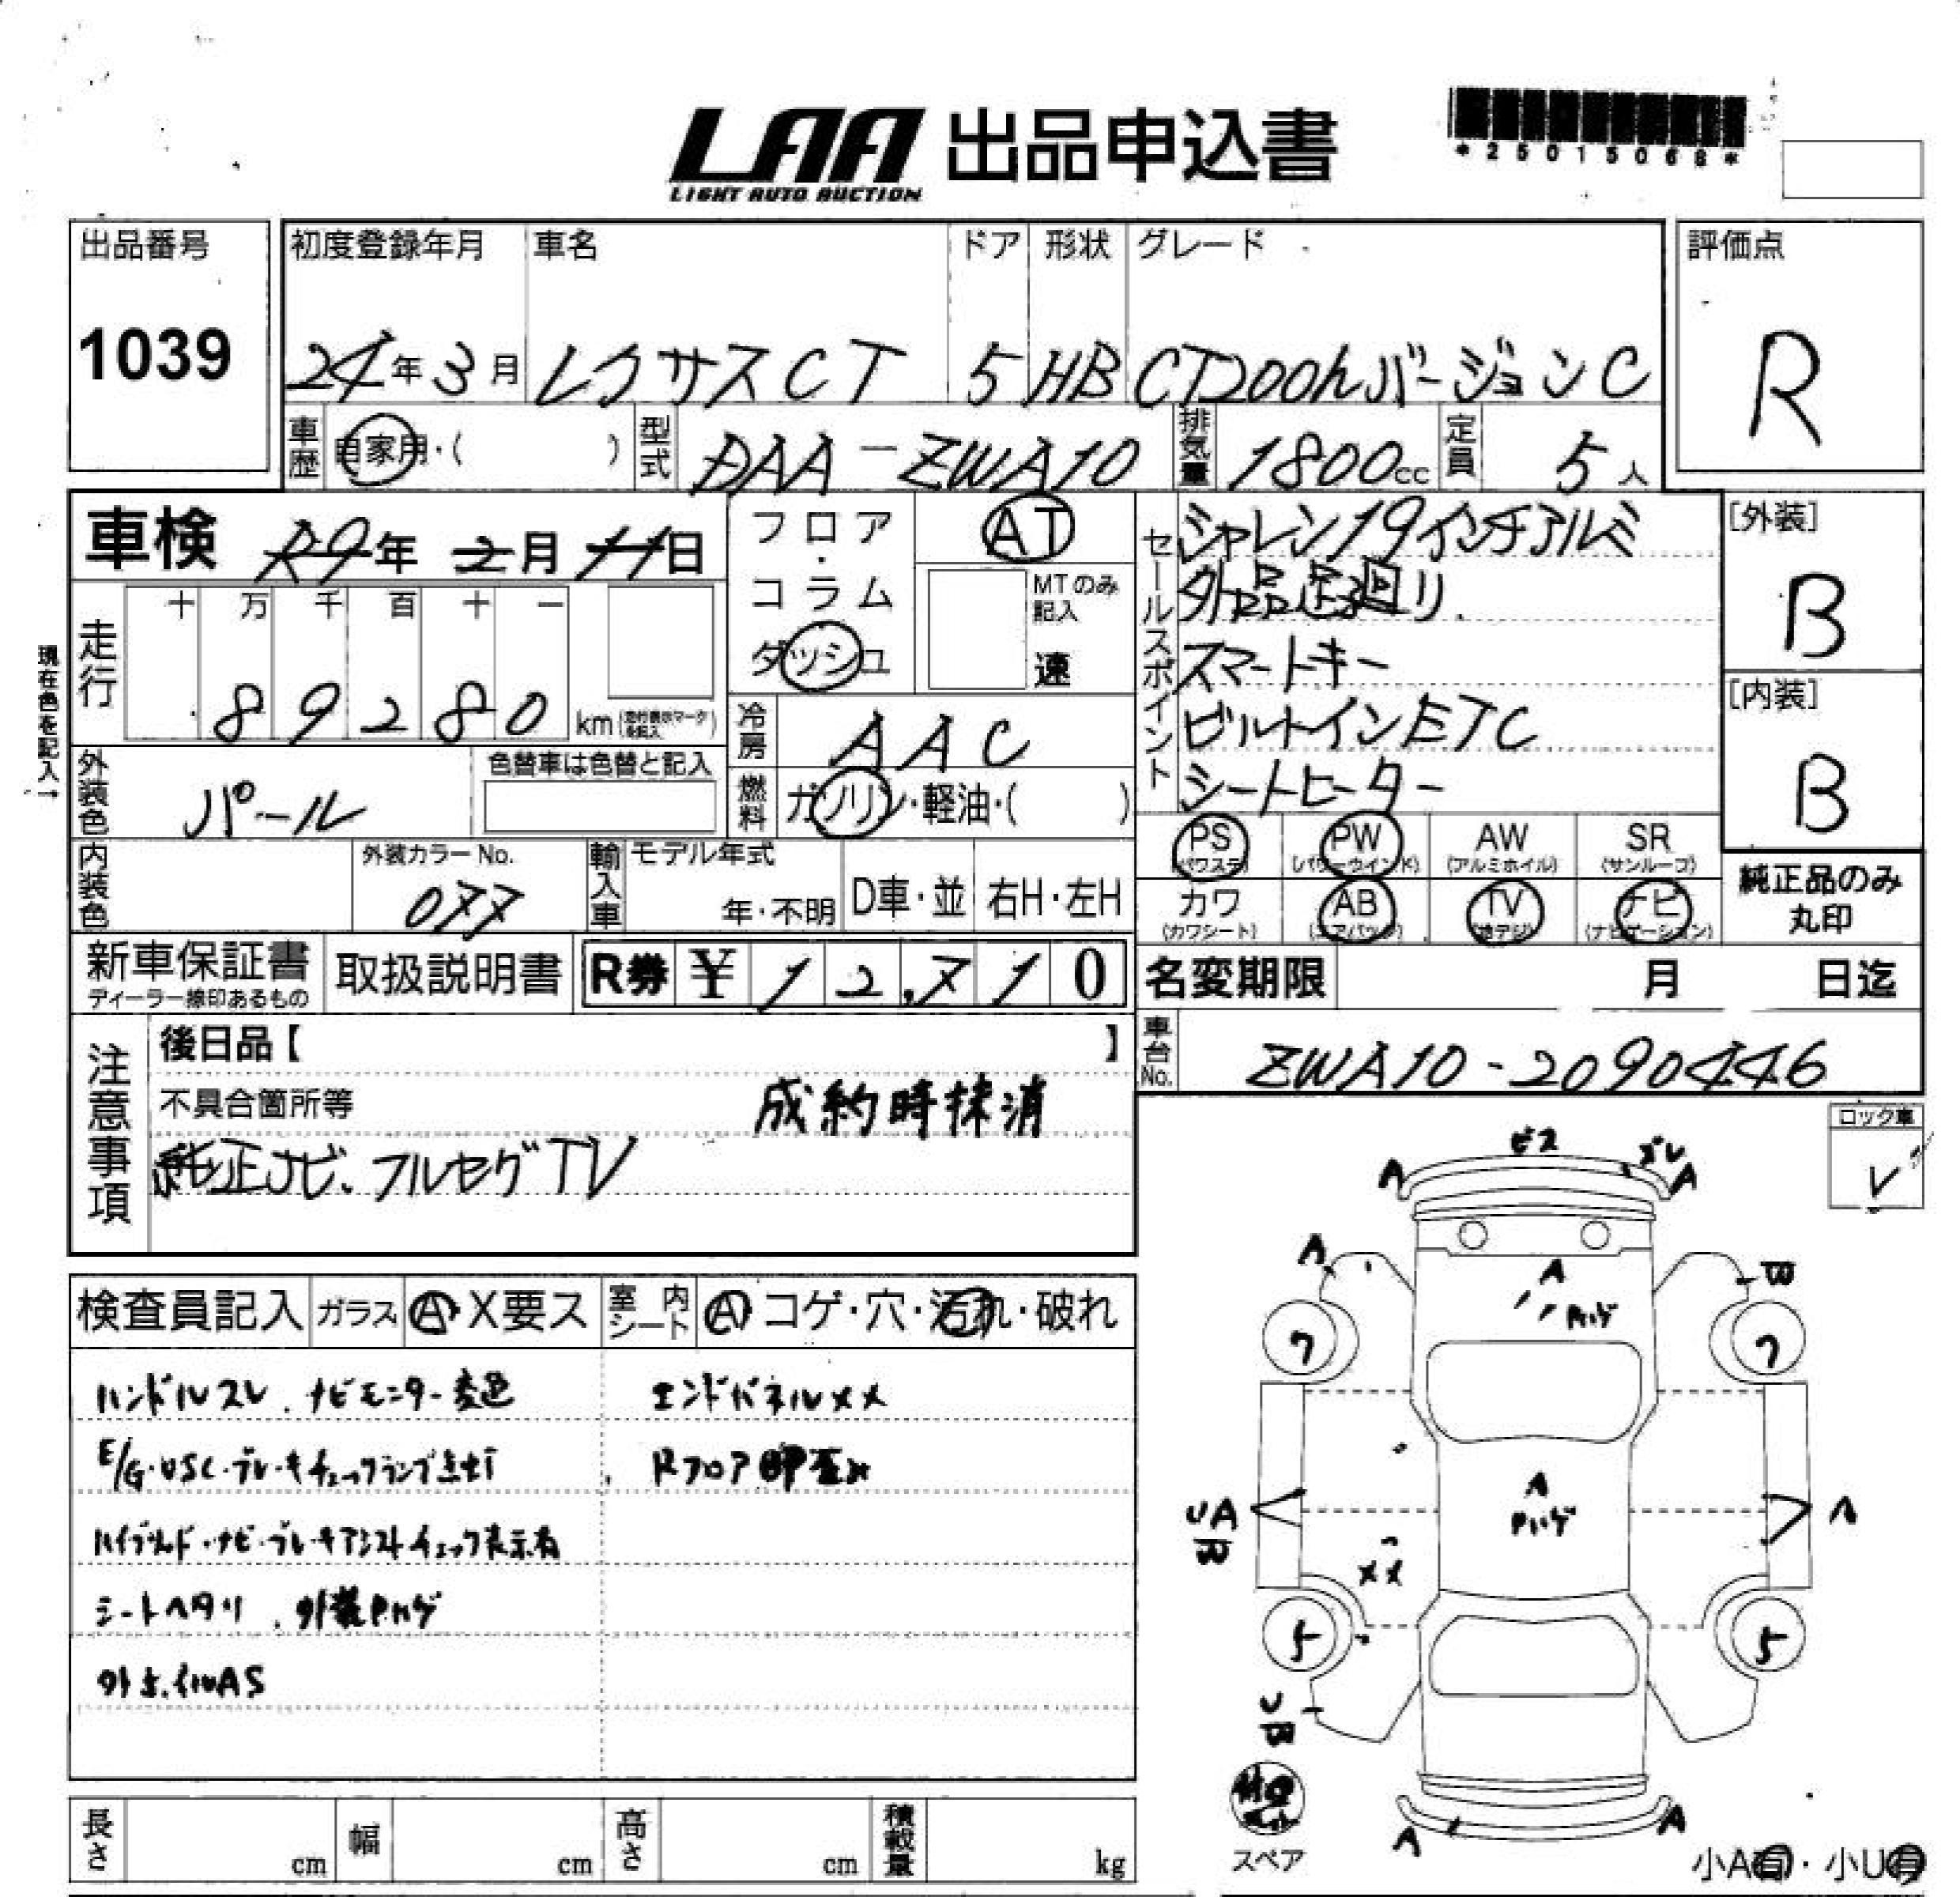 LAA 出品申込書
LIGHT AUTO AUCTION
*25015068*
出品番号
1039
初度登録年月 車名 ドア 形状 グレード
24年3月 レクサスCT 5 HB CT200hバージョンC
評価点
R
車歴 自家用・( ) 型式 DAA-ZWA10 排気量 1800cc 定員 5人
車検 R9年 2月 11日
フロア・コラム ダッシュ
AT
MTのみ記入
速
セールスポイント
シャレン19インチアルミ
外品足廻り
スマートキー
ビルトインETC
シートヒーター
[外装]
B
[内装]
B
現在色を記入→
走行
十 万 千 百 十 一
89280 km
冷房 AAC
外装色 パール
色替車は色替と記入
燃料 ガソリン・軽油・( )
PS (パワステ) PW (パワーウインド) AW (アルミホイル) SR (サンルーフ)
カワ (カワシート) AB (エアバッグ) TV (地デジ) ナビ (ナビゲーション)
純正品のみ
丸印
内装色
外装カラーNo.
077
輸入車 モデル年式
年・不明 D車・並 右H・左H
新車保証書
ディーラー線印あるもの
取扱説明書
R券 ¥12,710
名変期限 月 日迄
車台No. ZWA10-2090446
注意事項
後日品【 】
不具合箇所等
成約時抹消
純正ナビ、フルセグTV
ロック車
レ
検査員記入 ガラス A・X要ス 室内シート A コゲ・穴・汚れ・破れ
ハンドルスレ、ナビモニター変色
エンドパネルXX
E/G・VSC・ブレーキチェックランプ点灯
Rフロア
ハイブリッド・ナビ・ブレーキアシストチェック表示有
シートヘタリ、外装Pハゲ
外ホイルAS
ビス
ズレ
A
A
A
B
A
Pハゲ
7
7
A
Pハゲ
UA
B
A
XX
5
5
U
B
スペア
A
A
長さ cm 幅 cm 高さ cm 積載量 kg
小A有・小U有